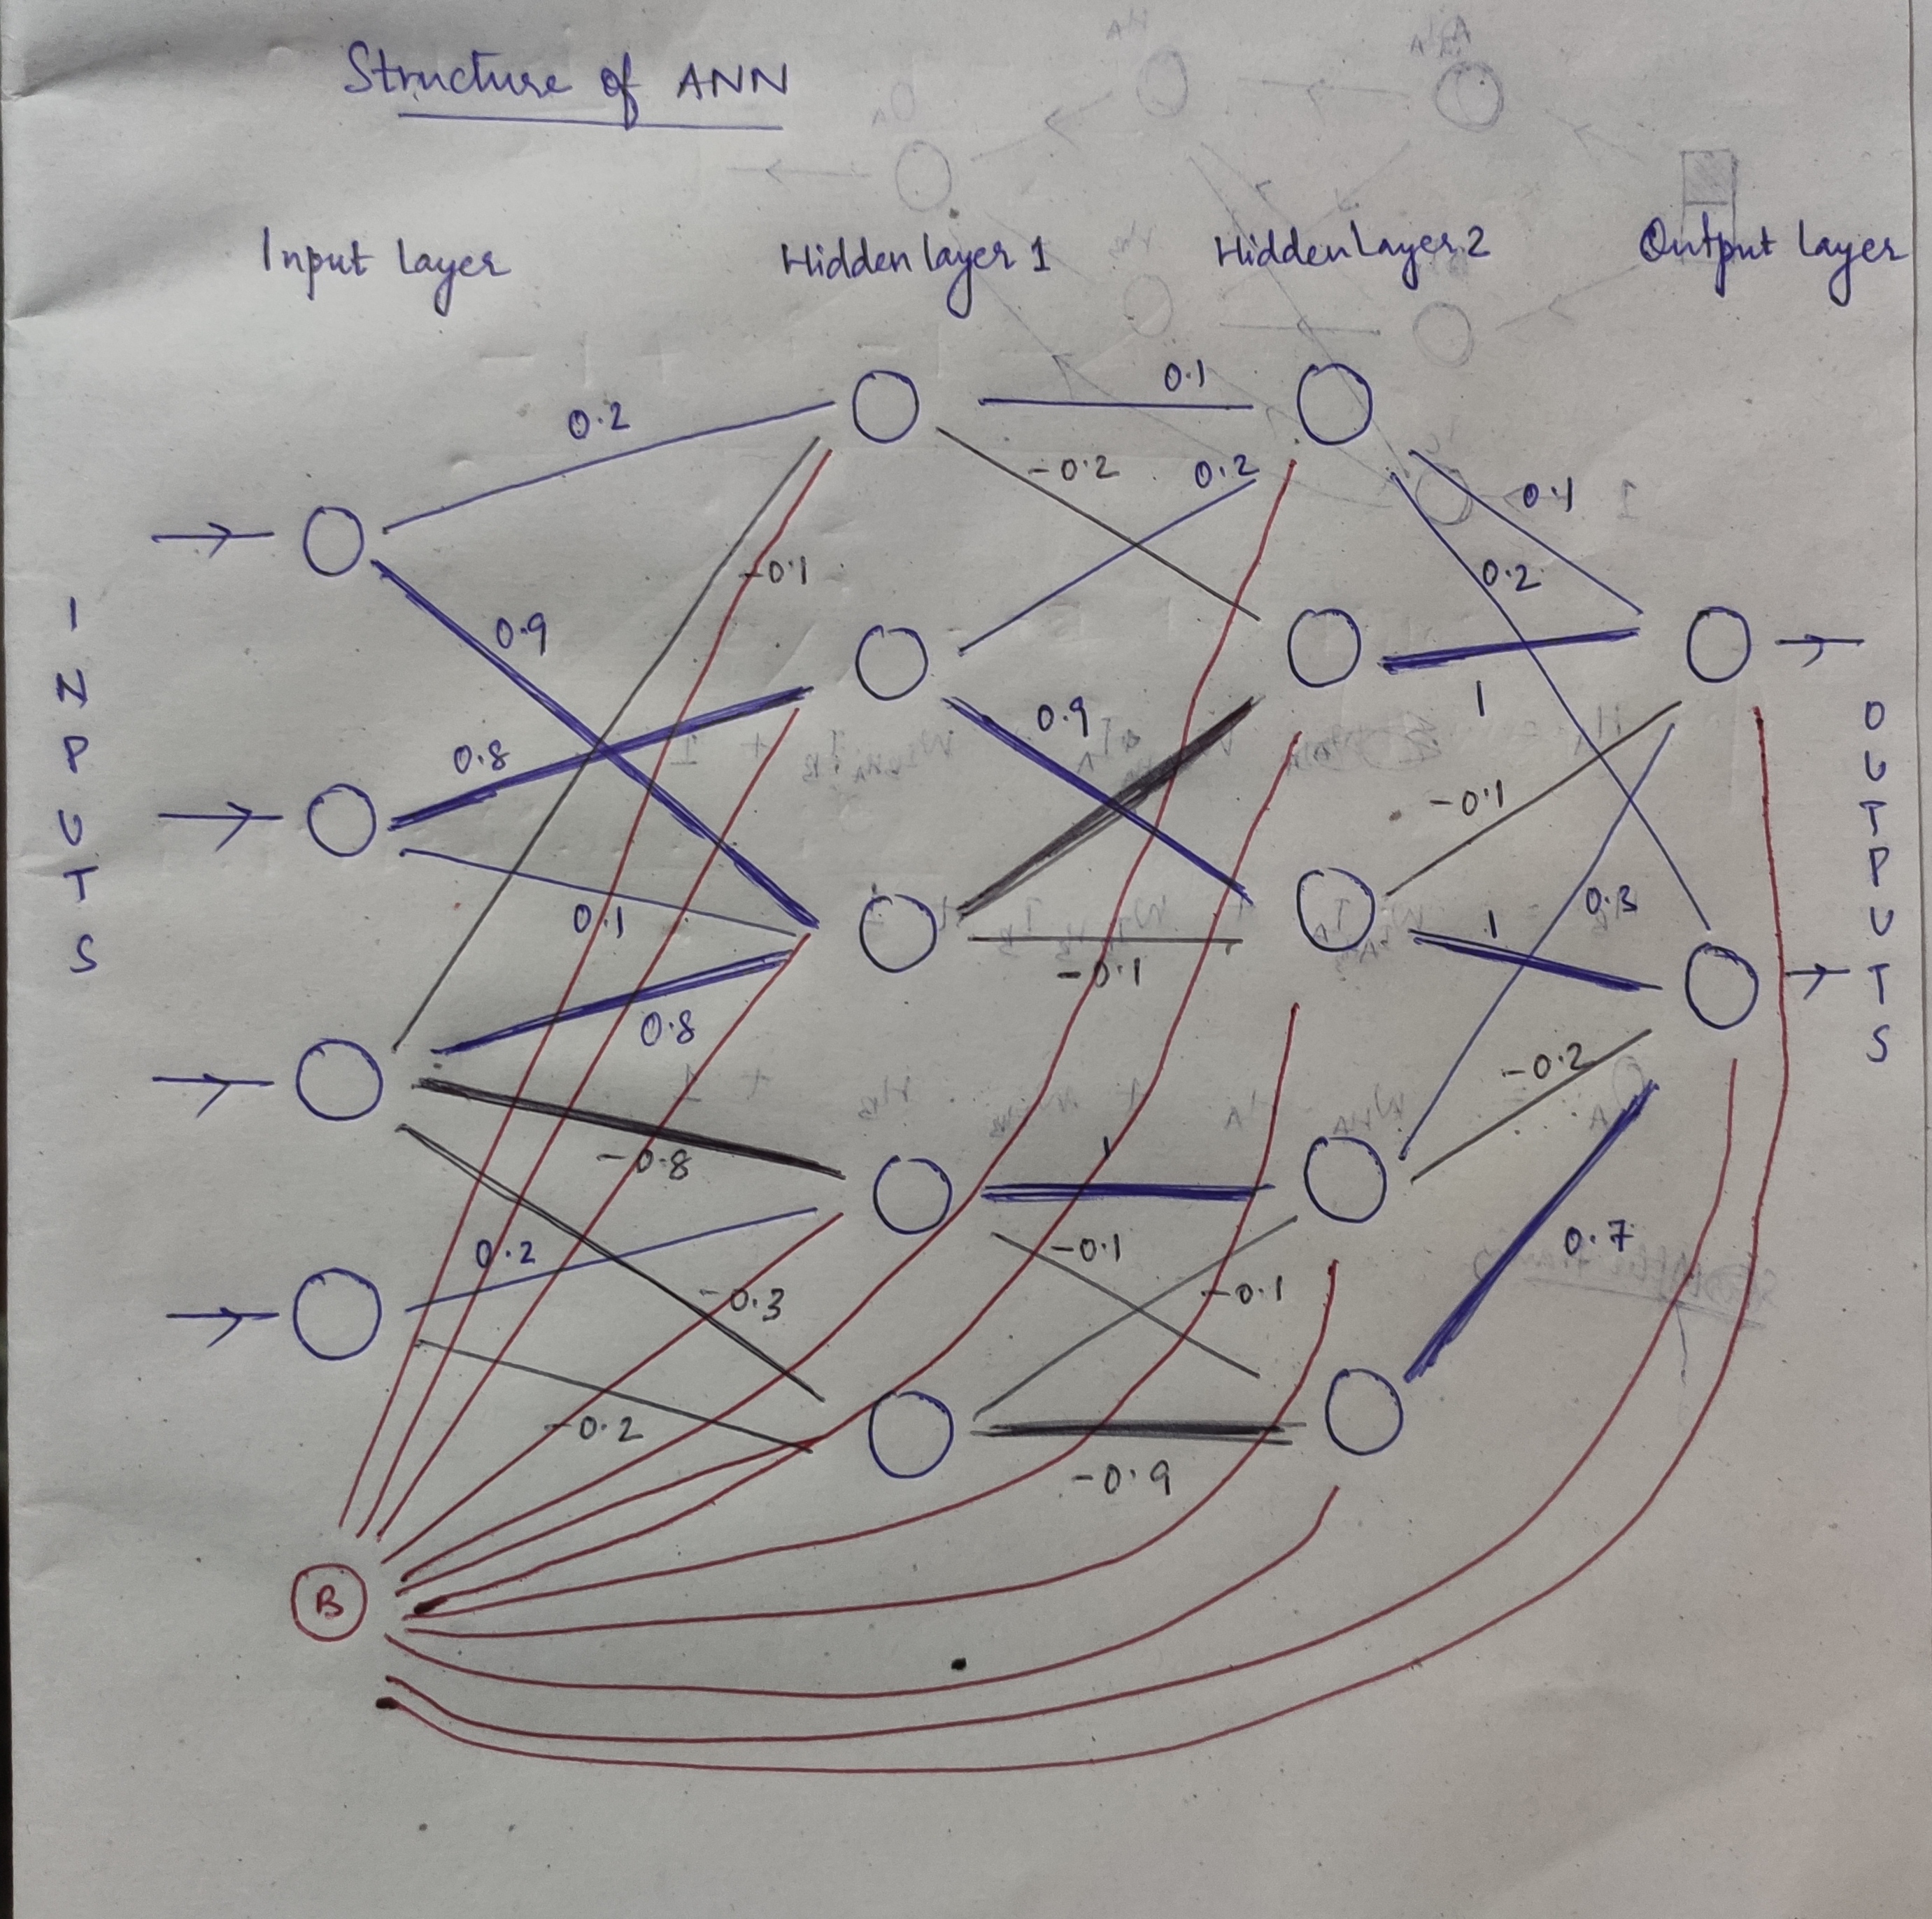 Structure of ANN
Input Layer
Hidden layer 1
Hidden Layer 2
Output Layer
INPUTS
0.2
0.9
0.8
0.1
-0.1
0.8
-0.8
0.2
-0.3
-0.2
0.1
-0.2
0.2
0.9
-0.1
1
-0.1
-0.1
-0.9
0.1
0.2
1
-0.1
0.3
1
-0.2
0.7
OUTPUTS
B